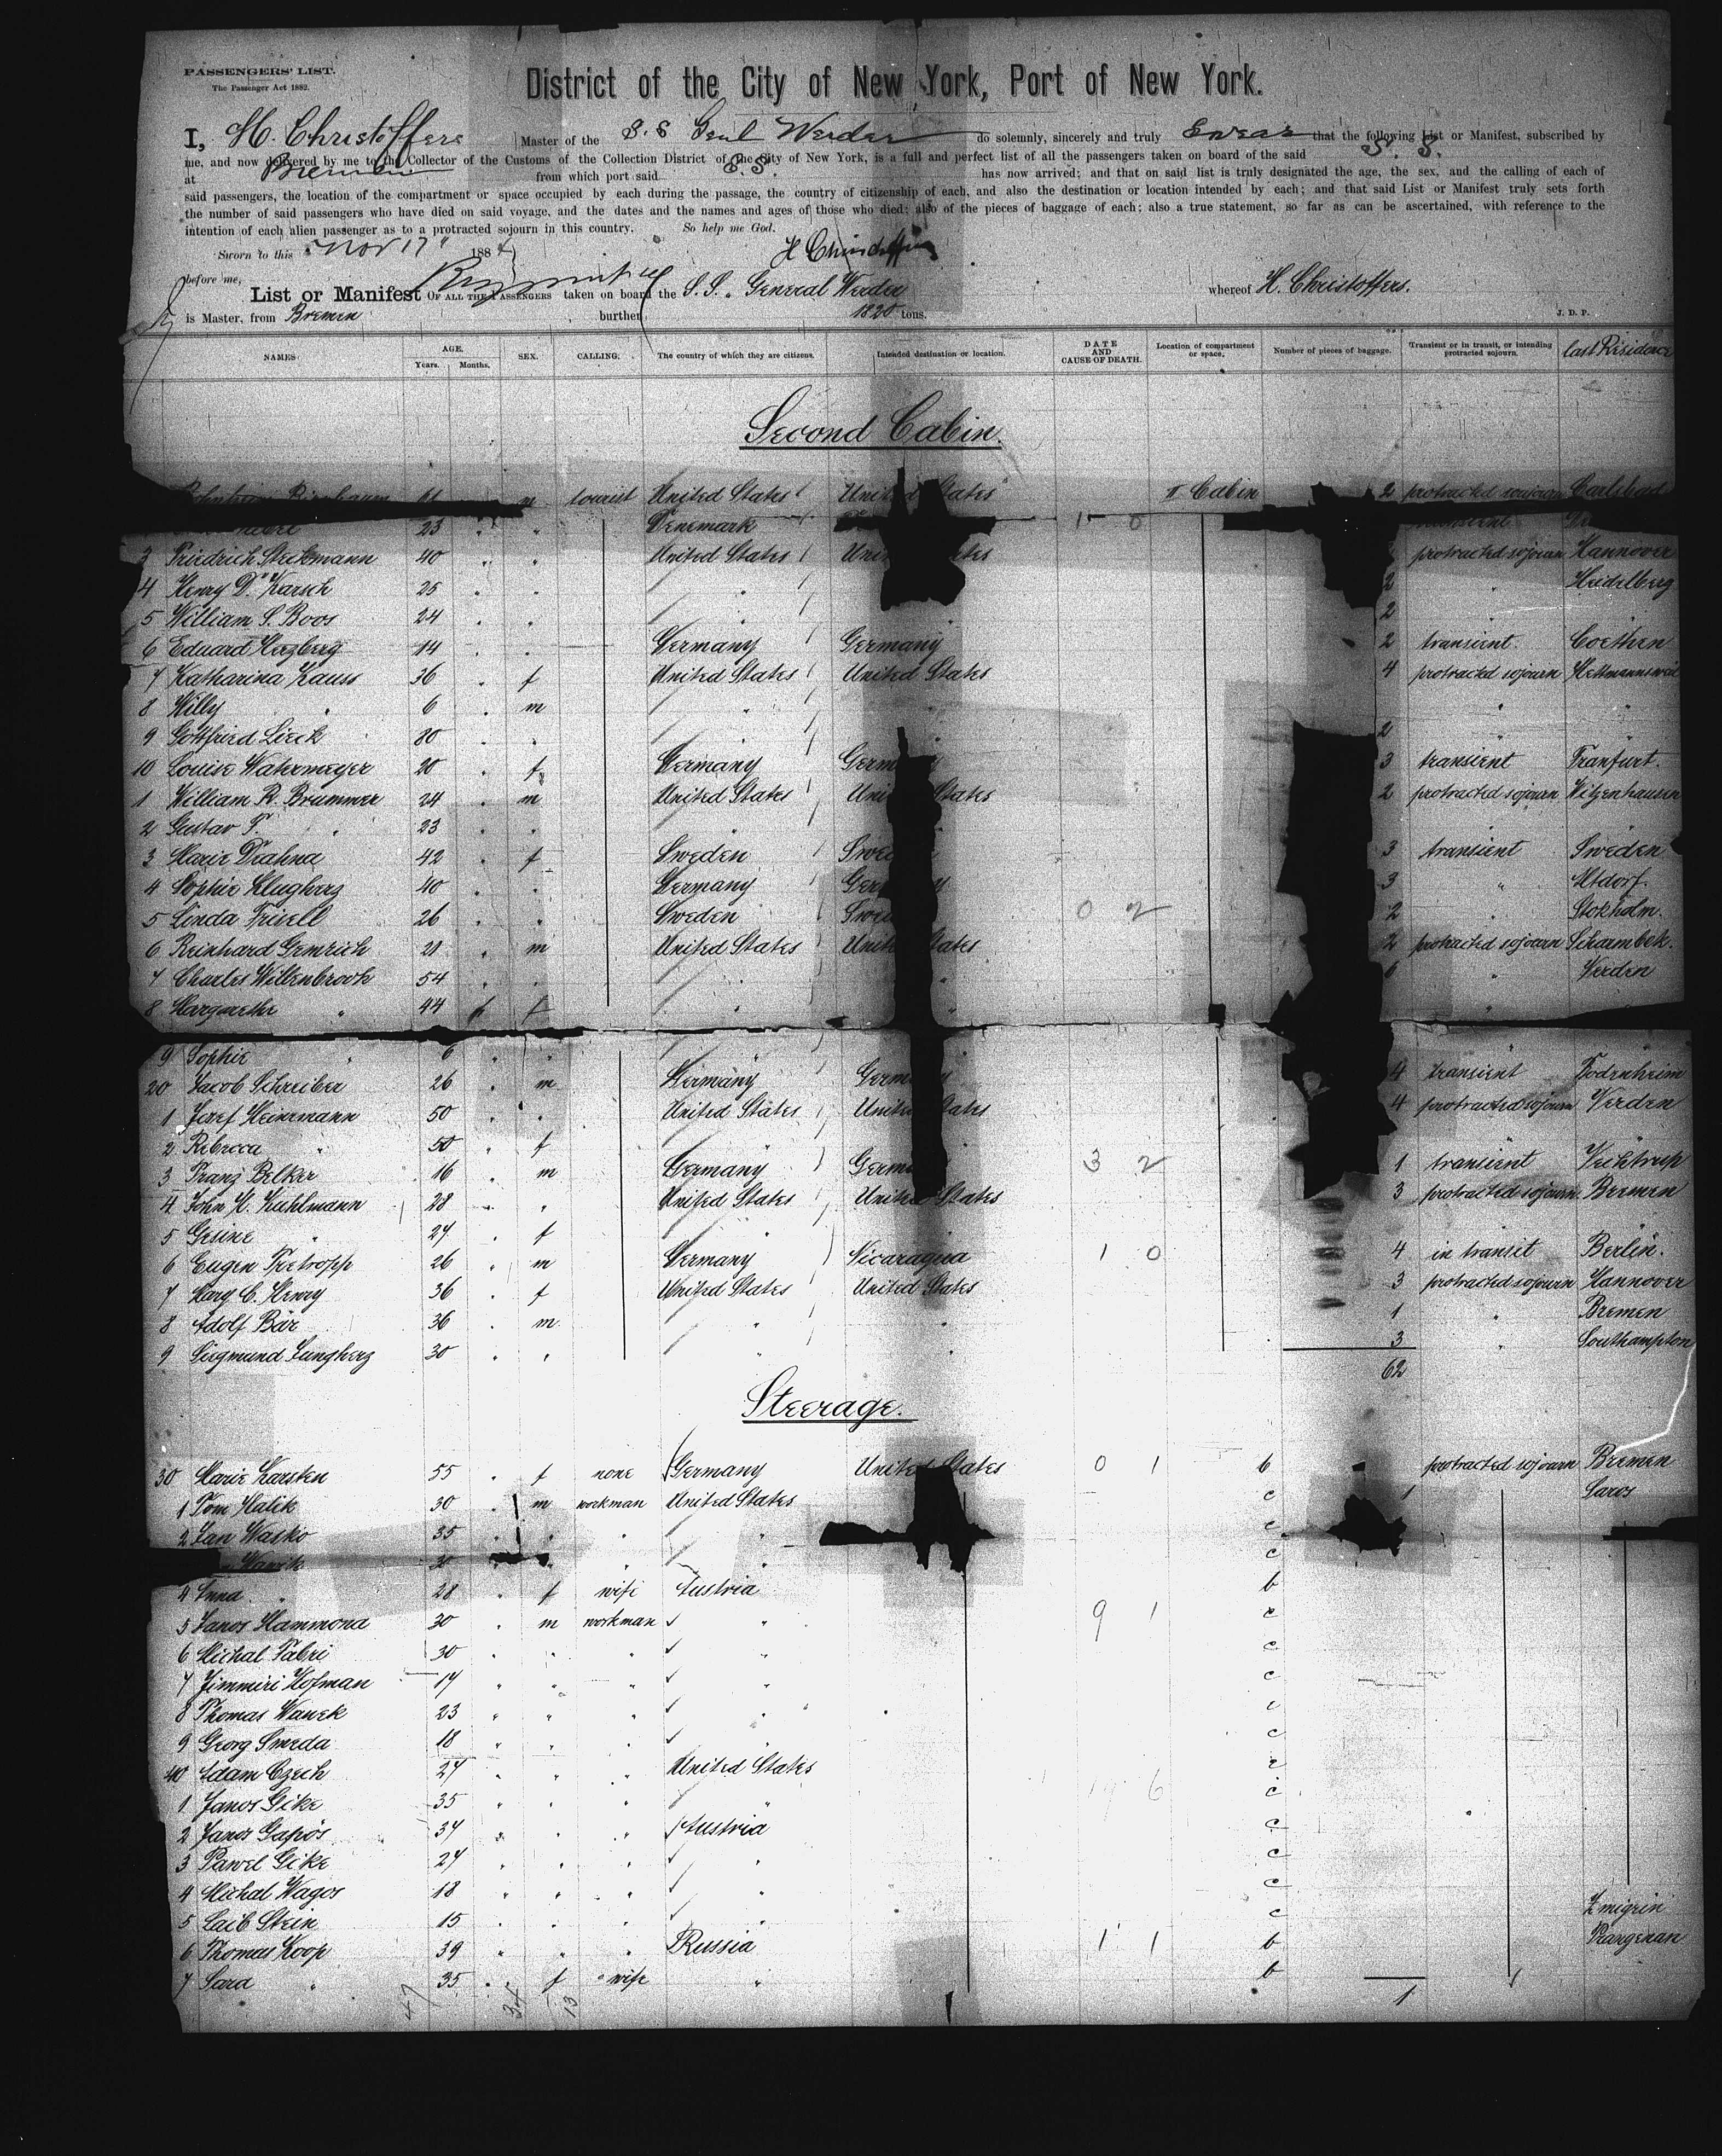 PASSENGERS' LIST.
The Passenger Act 1882.
District of the City of New York, Port of New York.
I, H. Christoffers Master of the S.S Genl Werder do solemnly, sincerely and truly Swear that the following List or Manifest, subscribed by
me, and now delivered by me to the Collector of the Customs of the Collection District of the City of New York, is a full and perfect list of all the passengers taken on board of the said S. S.
at Bremen from which port said S.S. has now arrived; and that on said list is truly designated the age, the sex, and the calling of each of
said passengers, the location of the compartment or space occupied by each during the passage, the country of citizenship of each, and also the destination or location intended by each; and that said List or Manifest truly sets forth
the number of said passengers who have died on said voyage, and the dates and the names and ages of those who died; also of the pieces of baggage of each; also a true statement, so far as can be ascertained, with reference to the
intention of each alien passenger as to a protracted sojourn in this country. So help me God.
Sworn to this Nov 17 188 H Christoffers
before me,
List or Manifest OF ALL THE PASSENGERS taken on board the S.S. General Werder whereof H. Christoffers.
is Master, from Bremen burthen 1820 tons. J. D. P.
NAMES AGE. Years. Months. SEX. CALLING. The country of which they are citizens. Intended destination or location. DATE AND CAUSE OF DEATH. Location of compartment or space. Number of pieces of baggage. Transient or in transit, or intending protracted sojourn. last Risidence
Second Cabin.
Birnbaum 61 m tourist United States United States II Cabin 2 protracted sojourn Carlsbad
23 " " Denemark 1 0 transient
3 Friedrich Steckmann 40 " " United States United States protracted sojourn Hannover
4 Henry D. Karsch 25 " " " 2 " Heidelberg
5 William S. Boos 24 " " " 2
6 Eduard Herzberg 14 " " Germany Germany 2 transient. Coethen
7 Katharina Kauss 36 " f United States United States 4 protracted sojourn Hettmannsweil
8 Willy " 6 " m " " " "
9 Gottfried Lieck 80 " " " " 2 "
10 Louise Watermeyer 20 " f Germany Germany 3 transient Franfurt.
1 William R. Brummer 24 " m United States United States 2 protracted sojourn Witzenhausen
2 Gustav F. " 23 " " "
3 Marie Drahna 42 " f Sweden Sweden 3 transient Sweden
4 Sophie Klugherz 40 " " Germany Germany 3 " Altdorf.
5 Linda Frivell 26 " " Sweden Sweden 0 2 2 " Stokholm.
6 Reinhard Gemrich 21 " m United States United States 2 protracted sojourn Scharmbek.
7 Charles Willenbrock 54 " " " " 6 " Verden
8 Margarethe " 44 " f " " "
9 Sophie " 6 " "
20 Jacob Schreiber 26 " m Germany Germany 4 transient Bodenheim
1 Josef Heinemann 50 " " United States United States 4 protracted sojourn Verden
2 Rebecca " 50 " f
3 Franz Belker 16 " m Germany Germany 3 2 1 transient Vechtrup
4 John H. Kuhlmann 28 " " United States United States 3 protracted sojourn Bremen
5 Gesine " 27 " f
6 Eugen Tretropp 26 " m Germany Nicaragua 1 0 4 in transit Berlin.
7 Mary C. Henry 36 " f United States United States 3 protracted sojourn Hannover
8 Adolf Bär 36 " m " 1 " Bremen
9 Siegmund Jungherz 30 " " " " 3 " Southampton
62
Steerage.
30 Marie Karsten 55 " f none Germany United States 0 1 b protracted sojourn Bremen
1 Tom Halik 30 " m workman United States c 1 Saros
2 Jan Wasko 35 " " " " c
30 " " c
4 Anna " 28 " f wife Austria b
5 Janos Hammona 30 " m workman " 9 1 c
6 Michal Fabri 30 " " " " c
7 Jimmiri Hofman 17 " " " " c
8 Thomas Wanek 23 " " " " c
9 Georg Smeda 18 " " " " c
40 Adam Czech 27 " " " United States c
1 Janos Gike 35 " " " " 19 6 c
2 Janos Gapos 37 " " " Austria c
3 Pawel Gike 27 " " " " c
4 Michal Wagos 18 " " " " c
5 Laib Stein 15 " " " " c Zmigrin
6 Thomas Koop 39 " " " Russia 1 1 b Prangenan
7 Sara " 35 " f wife " b
47 34 13 1